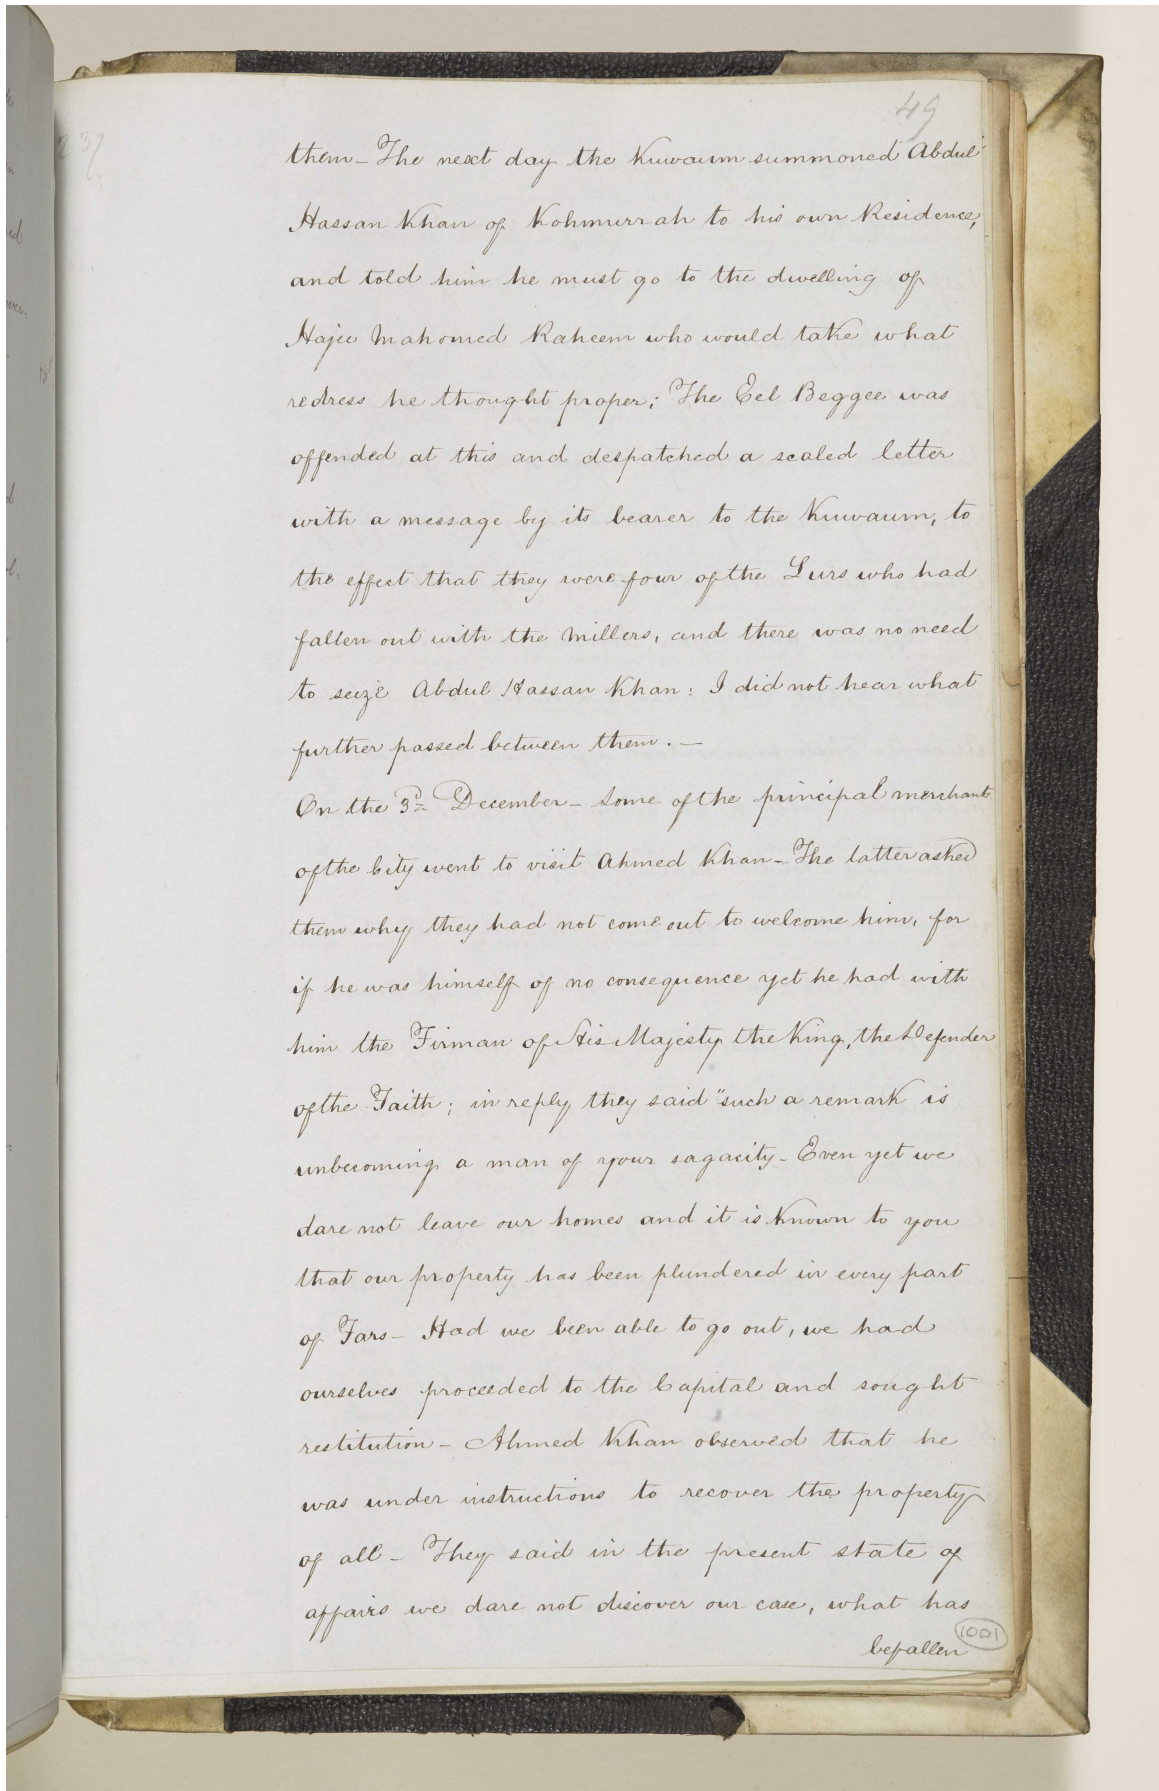 49
237
them – The next day the Kuwaum summoned Abdul
Hassan Khan of Kohmurrah to his own Residence,
and told him he must go to the dwelling of
Hajee Mahomed Raheem who would take what
redress he thought proper; The Eel Beggee was
offended at this and despatched a sealed letter
with a message by its bearer to the Kuwaum, to
the effect that they were four of the Lurs who had
fallen out with the millers, and there was no need
to seize Abdul Hassan Khan: I did not hear what
further passed between them. –
On the 3d December – Some of the principal merchants
of the City went to visit Ahmed Khan – The latter asked
them why they had not come out to welcome him, for
if he was himself of no consequence yet he had with
him the Firman of His Majesty the King, the Defender
of the Faith; in reply they said "such a remark is
unbecoming a man of your sagacity – Even yet we
dare not leave our homes and it is Known to you
that our property has been plundered in every part
of Fars – Had we been able to go out, we had
ourselves proceeded to the Capital and sought
restitution – Ahmed Khan observed that he
was under instructions to recover the property
of all – They said in the present state of
affairs we dare not discover our case, what has
befallen
1001